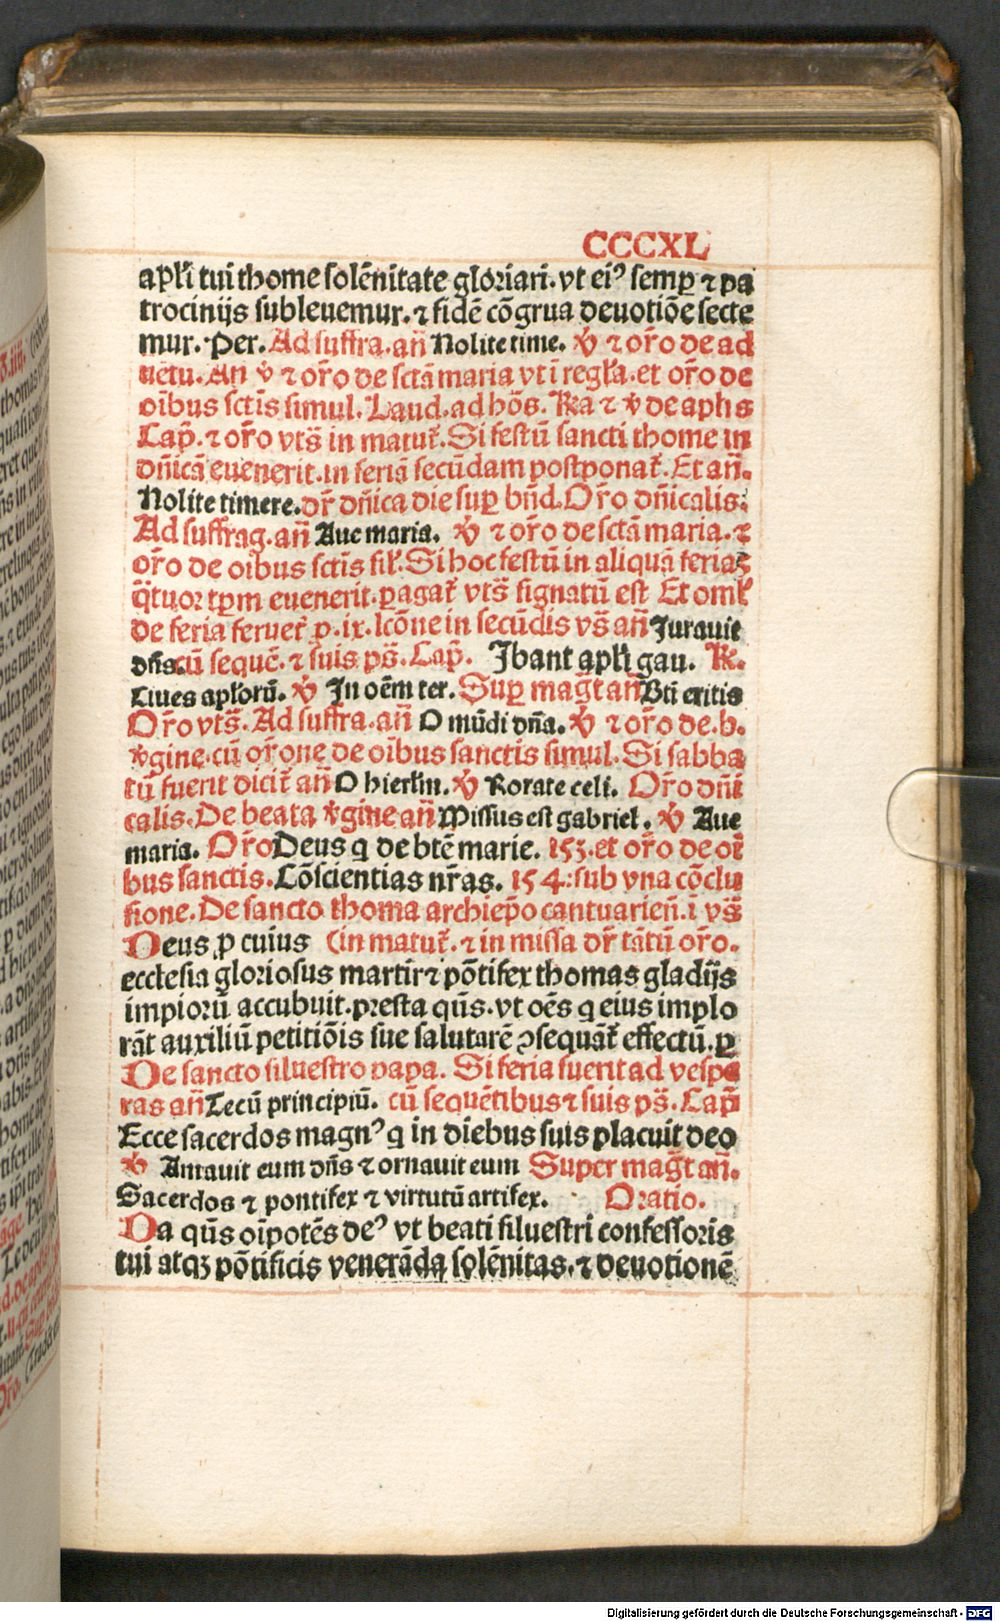 CCCXL
apl̄i tui thome solēnitate gloriari. vt ei⁹ semꝑ ⁊ pa
trocinijs subleuemur. ⁊ fidē cōgrua deuotiōe secte
mur. Per. Ad suffra. an̄ Nolite time. ℣ ⁊ or̄o de ad
uētu. An̄ ℣ ⁊ or̄o de sctā maria vt ī regl̄a. et or̄o de
oībus sctīs simul. Laud. ad hōs. Ra ⁊ ℣ de apl̄is
Cap̄. ⁊ or̄o vts̄ in matut̄. Si festū sancti thome in
dn̄icā euenerit. in feriā secūdam postponat̄. Et an̄.
Nolite timere. dr̄ dn̄ica die suꝑ bn̄d. Or̄o dn̄icalis.
Ad suffrag. an̄ Aue maria. ℣ ⁊ or̄o de sctā maria. ⁊
or̄o de oībus sctīs sil̄. Si hoc festū in aliquā ferias
q̄tuor tꝑm euenerit. ꝑagat̄ vts̄ signatū est Et oml̄
de feria seruet̄ p. ix. lcōne in secūdis vs̄ an̄ Jurauit
dn̄s. cū sequē. ⁊ suis ps̄. Cap̄. Jbant apl̄i gau. ℟.
Ciues apl̄orū. ℣ Jn oēm ter. Suꝑ maḡt an̄ Bti eritis
Or̄o vts̄. Ad suffra. an̄ O mūdi dn̄a. ℣ ⁊ or̄o de. b.
v̄gine. cū or̄one de oībus sanctis simul. Si sabba
tū fuerit dicit̄ an̄ O hierl̄m. ℣ Rorate celi. Or̄o dn̄i
calis. De beata v̄gine an̄ Missus est gabriel. ℣ Aue
maria. Or̄o Deus q de btē marie. 153. et or̄o de oī
bus sanctis. Cōscientias nr̄as. 154. sub vna cōclu
sione. De sancto thoma archiep̄o cantuarien̄. i vs̄
Deus ꝓ cuius (in matut̄. ⁊ in missa dr̄ tātū or̄o.
ecclesia gloriosus martir ⁊ pōtifex thomas gladijs
impiorū accubuit. presta qūs. vt oēs q eius implo
rāt auxiliū petitiōis sue salutarē ꝯsequāt̄ effectū. ꝑ
De sancto siluestro papa. Si feria fuerit ad vespe
ras an̄ Tecū principiū. cū sequētibus ⁊ suis ps̄. Cap̄
Ecce sacerdos magn⁹ q in diebus suis placuit deo
℣ Amauit eum dn̄s ⁊ ornauit eum Super maḡt an̄.
Sacerdos ⁊ pontifex ⁊ virtutū artifex. Oratio.
Da qūs oīpotēs de⁹ vt beati siluestri confessoris
tui atqꝫ pōtificis venerāda solēnitas. ⁊ deuotionē
Digitalisierung gefördert durch die Deutsche Forschungsgemeinschaft - DFG